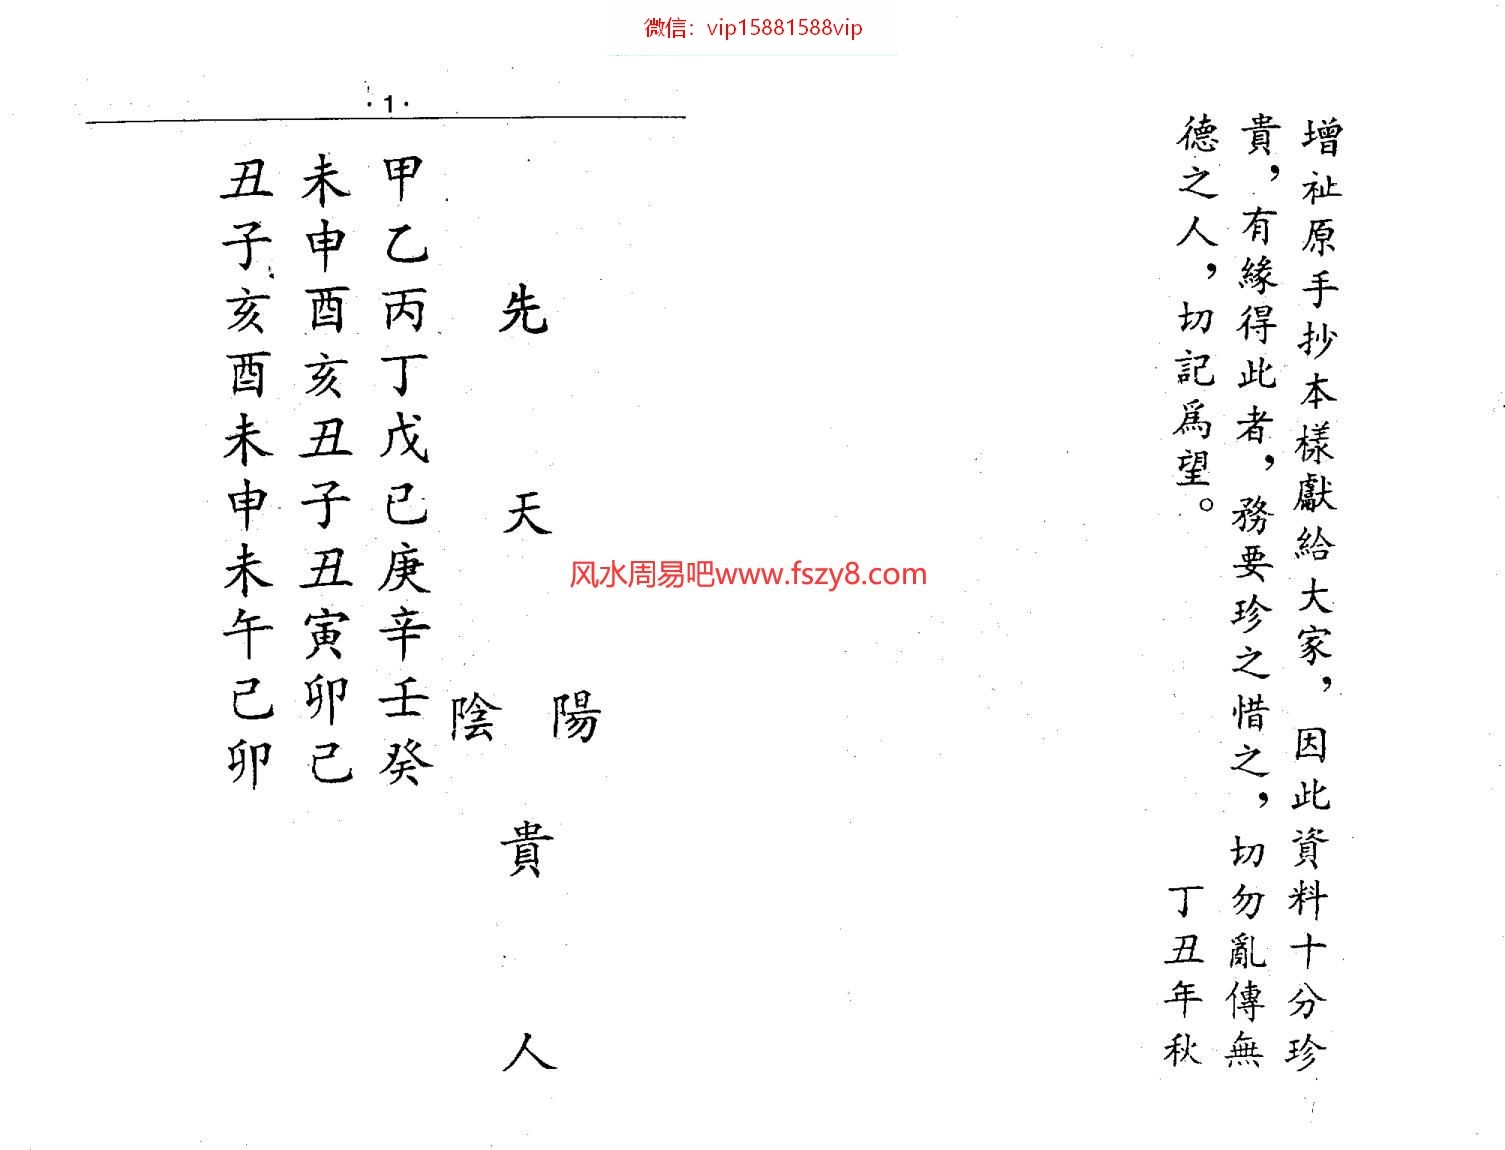 微信：vip15881588vip
增祉原手抄本樣獻給大家，因此資料十分珍
貴，有緣得此者，務要珍之惜之，切勿亂傳無
德之人，切記爲望。
丁丑年秋
·1·
先天陽陰貴人
甲乙丙丁戊己庚辛壬癸
未申酉亥丑子丑寅卯己
丑子亥酉未申未午己卯
风水周易吧www.fszy8.com